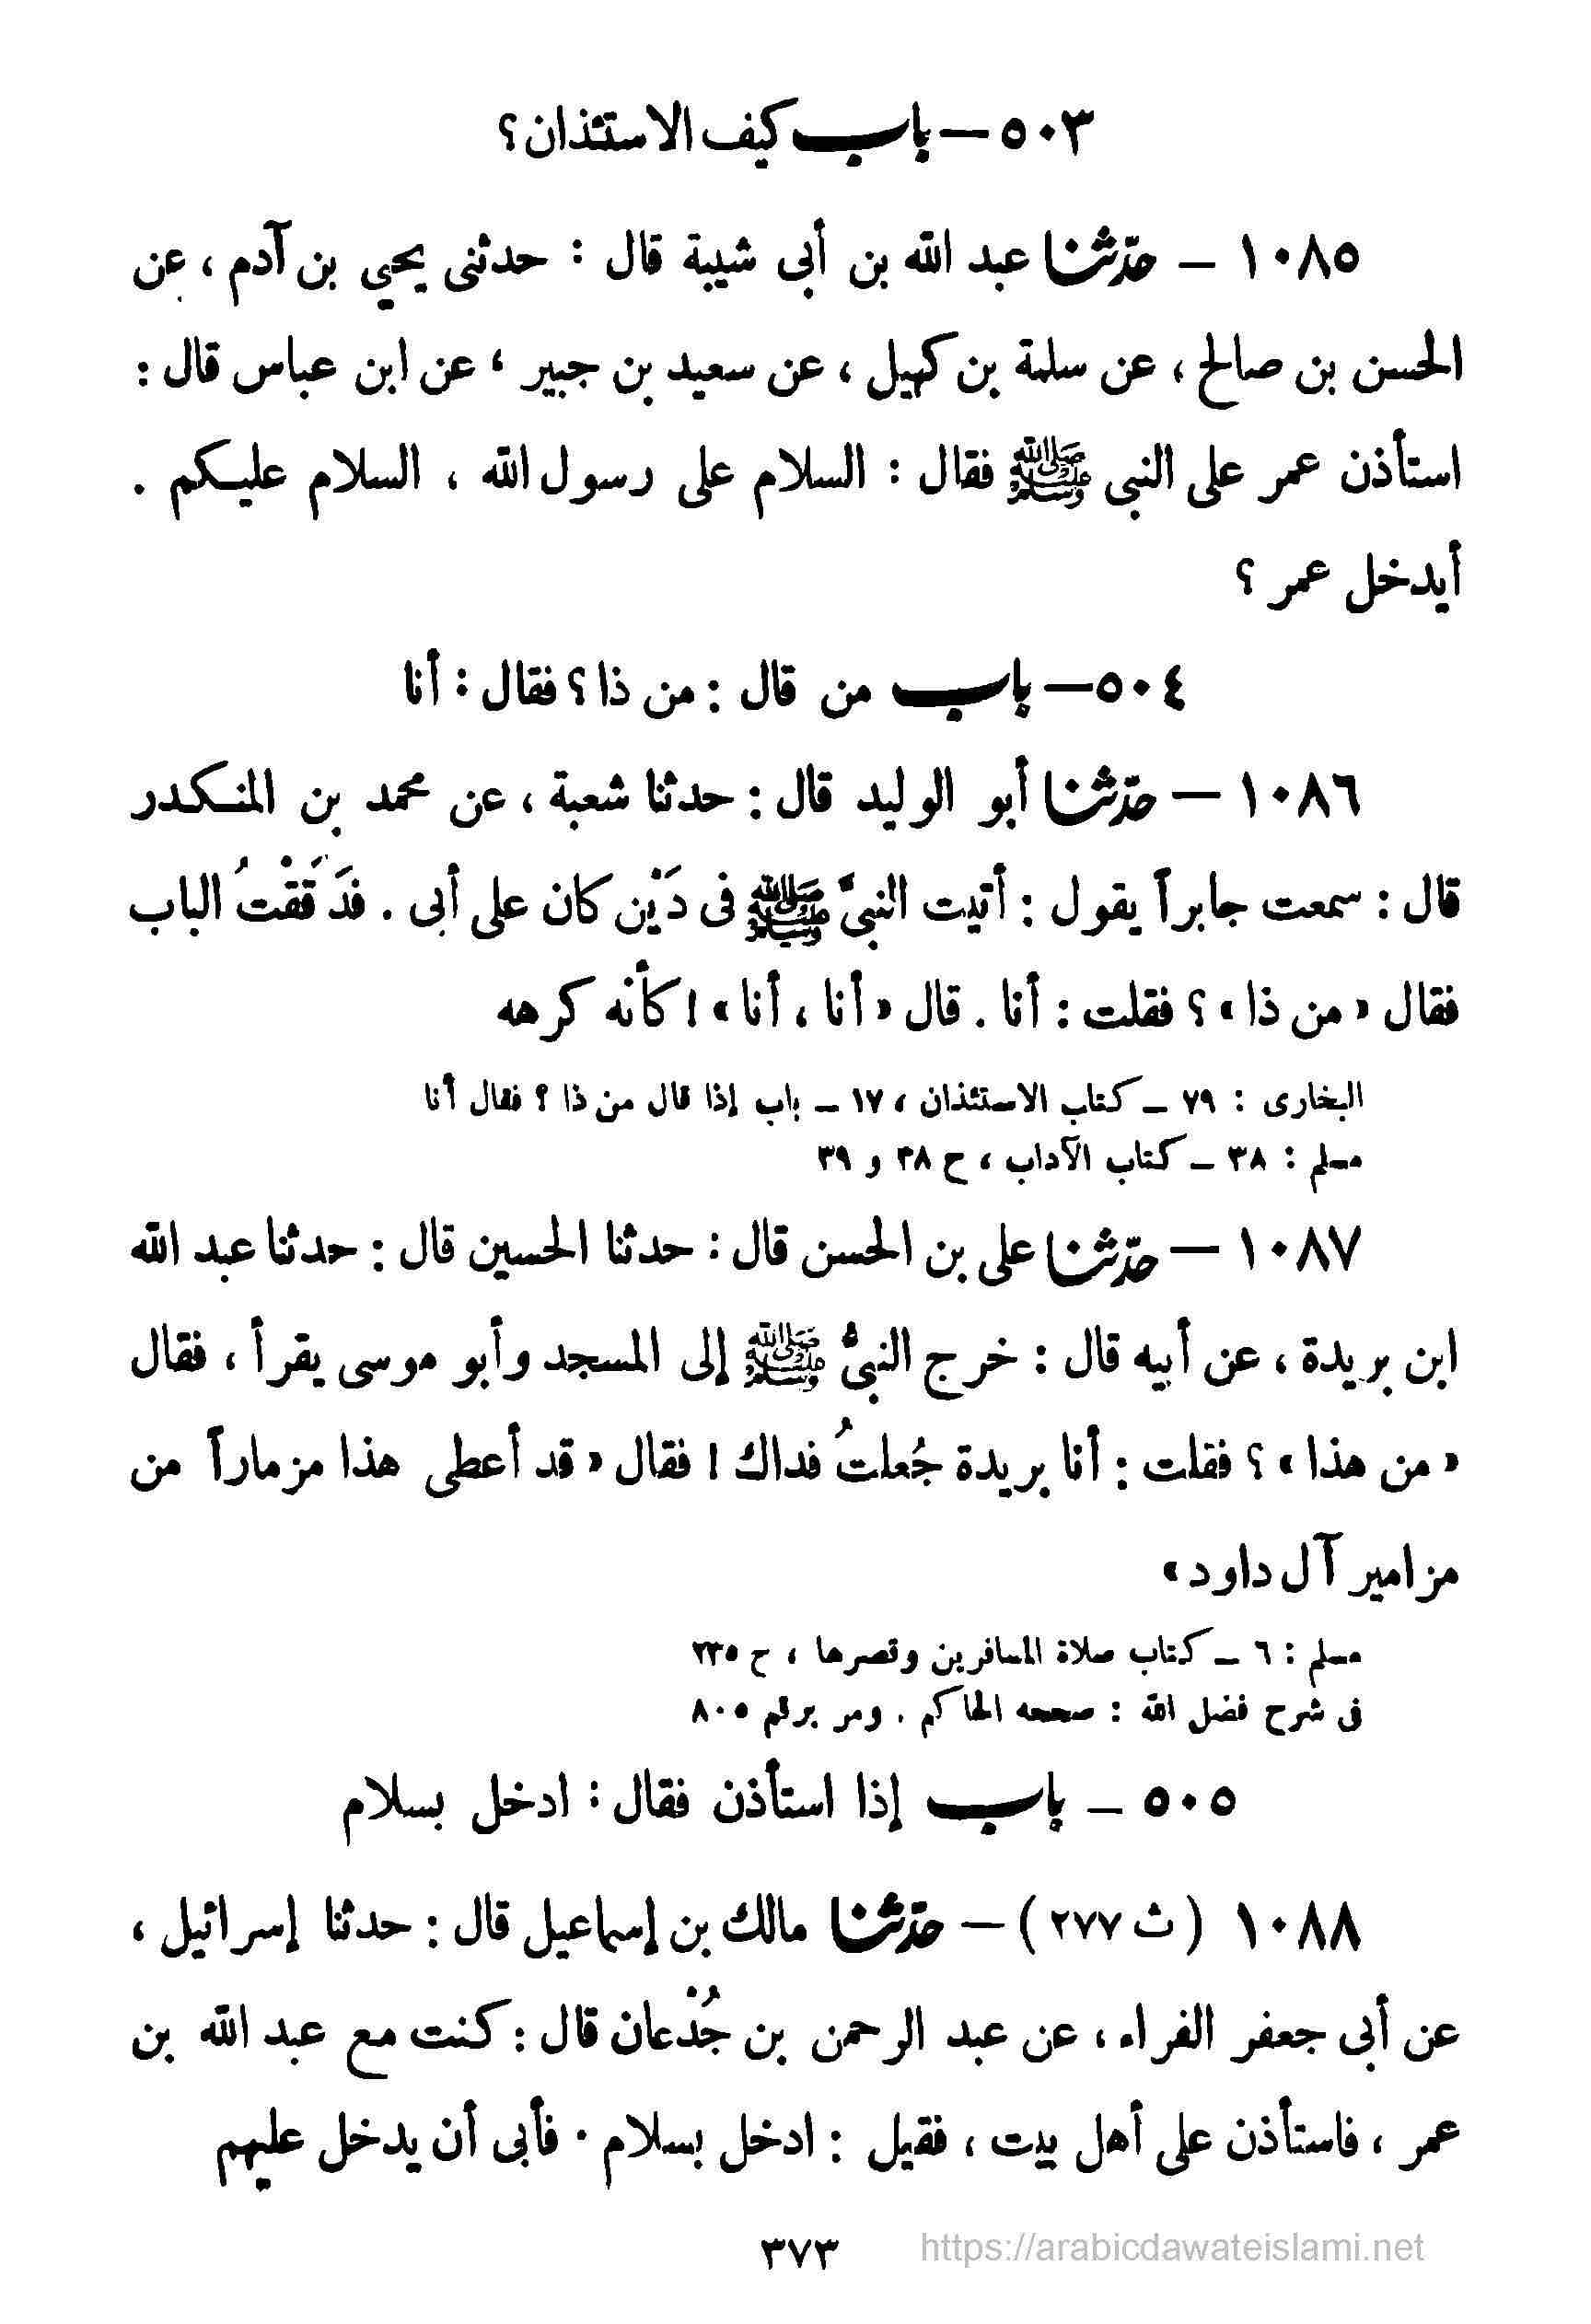 ٥٠٣ — باب كيف الاستئذان؟
١٠٨٥ – حدّثنا عبد الله بن أبى شيبة قال : حدثنى يحيي بن آدم ، عن
الحسن بن صالح ، عن سلمة بن كهيل ، عن سعيد بن جبير ، عن ابن عباس قال :
استأذن عمر على النبى ﷺ فقال : السلام على رسول الله ، السلام عليكم .
أيدخل عمر ؟
٥٠٤ — باب من قال : من ذا ؟ فقال : أنا
١٠٨٦ — حدّثنا أبو الوليد قال : حدثنا شعبة ، عن محمد بن المنكدر
قال : سمعت جابراً يقول : أتيت النبىَّ ﷺ فى دَيْن كان على أبى . فَدَقَقْتُ الباب
فقال « من ذا » ؟ فقلت : أنا . قال « أنا ، أنا » ! كأنه كرهه
البخارى : ٧٩ – كتاب الاستئذان ، ١٧ – باب إذا قال من ذا ؟ فقال أنا
مسلم : ٣٨ – كتاب الآداب ، ح ٣٨ و ٣٩
١٠٨٧ — حدّثنا على بن الحسن قال : حدثنا الحسين قال : حدثنا عبد الله
ابن بريدة ، عن أبيه قال : خرج النبىُّ ﷺ إلى المسجد وأبو موسى يقرأ ، فقال
« من هذا » ؟ فقلت : أنا بريدة جُعلتُ فداك ! فقال « قد أعطى هذا مزماراً من
مزامير آل داود »
مسلم : ٦ – كتاب صلاة المسافرين وقصرها ، ح ٢٣٥
فى شرح فضل الله : صححه الحاكم . ومر برقم ٨٠٥
٥٠٥ – باب إذا استأذن فقال : ادخل بسلام
١٠٨٨ ( ث ٢٧٧ ) — حدّثنا مالك بن إسماعيل قال : حدثنا إسرائيل ،
عن أبى جعفر الفراء ، عن عبد الرحمن بن جُدْعان قال : كنت مع عبد الله بن
عمر ، فاستأذن على أهل بيت ، فقيل : ادخل بسلام . فأبى أن يدخل عليهم
٣٧٣
https://arabicdawateislami.net